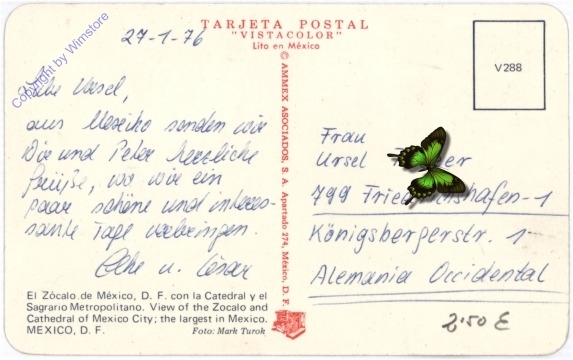 27-1-76
TARJETA POSTAL
"VISTACOLOR"
Lito en México
Copyright by Wimstore
Liebe Ursel,
aus Mexiko senden wir
Dir und Peter herzliche
Grüße, wo wir ein
paar schöne und interes-
sante Tage verbringen.
u. César
El Zócalo de México, D. F. con la Catedral y el
Sagrario Metropolitano. View of the Zocalo and
Cathedral of Mexico City; the largest in Mexico.
MEXICO, D. F. Foto: Mark Turok
© AMMEX ASOCIADOS, S. A. Apartado 274, México, D. F.
V288
Frau
Ursel
799 Friedrichshafen-1
Königsbergerstr. 1
Alemania Occidental
2.50 E